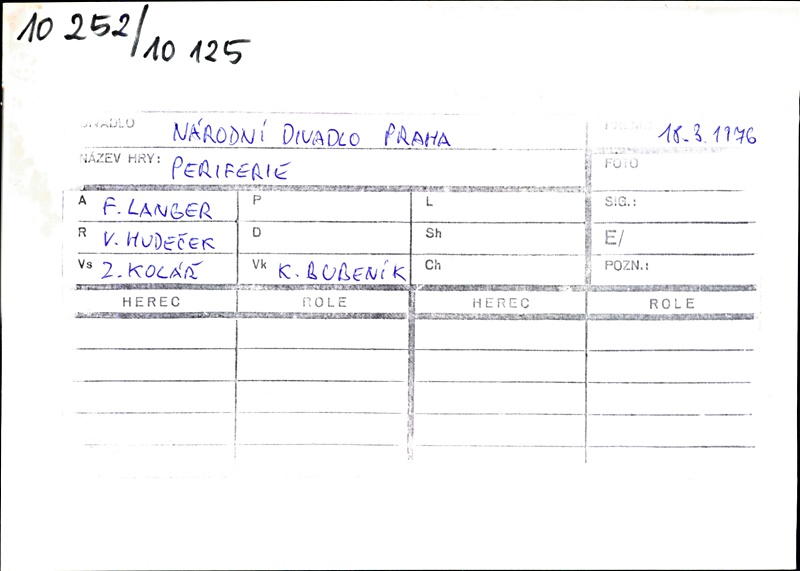 10 252/10 125
DIVADLO NÁRODNÍ DIVADLO PRAHA 18.3.1976
NÁZEV HRY: PERIFERIE FOTO
A F. LANGER P L SIG.:
R V. HUDEČEK D Sh E/
Vs Z. KOLÁŘ Vk K. BUBENÍK Ch POZN.:
HEREC ROLE HEREC ROLE